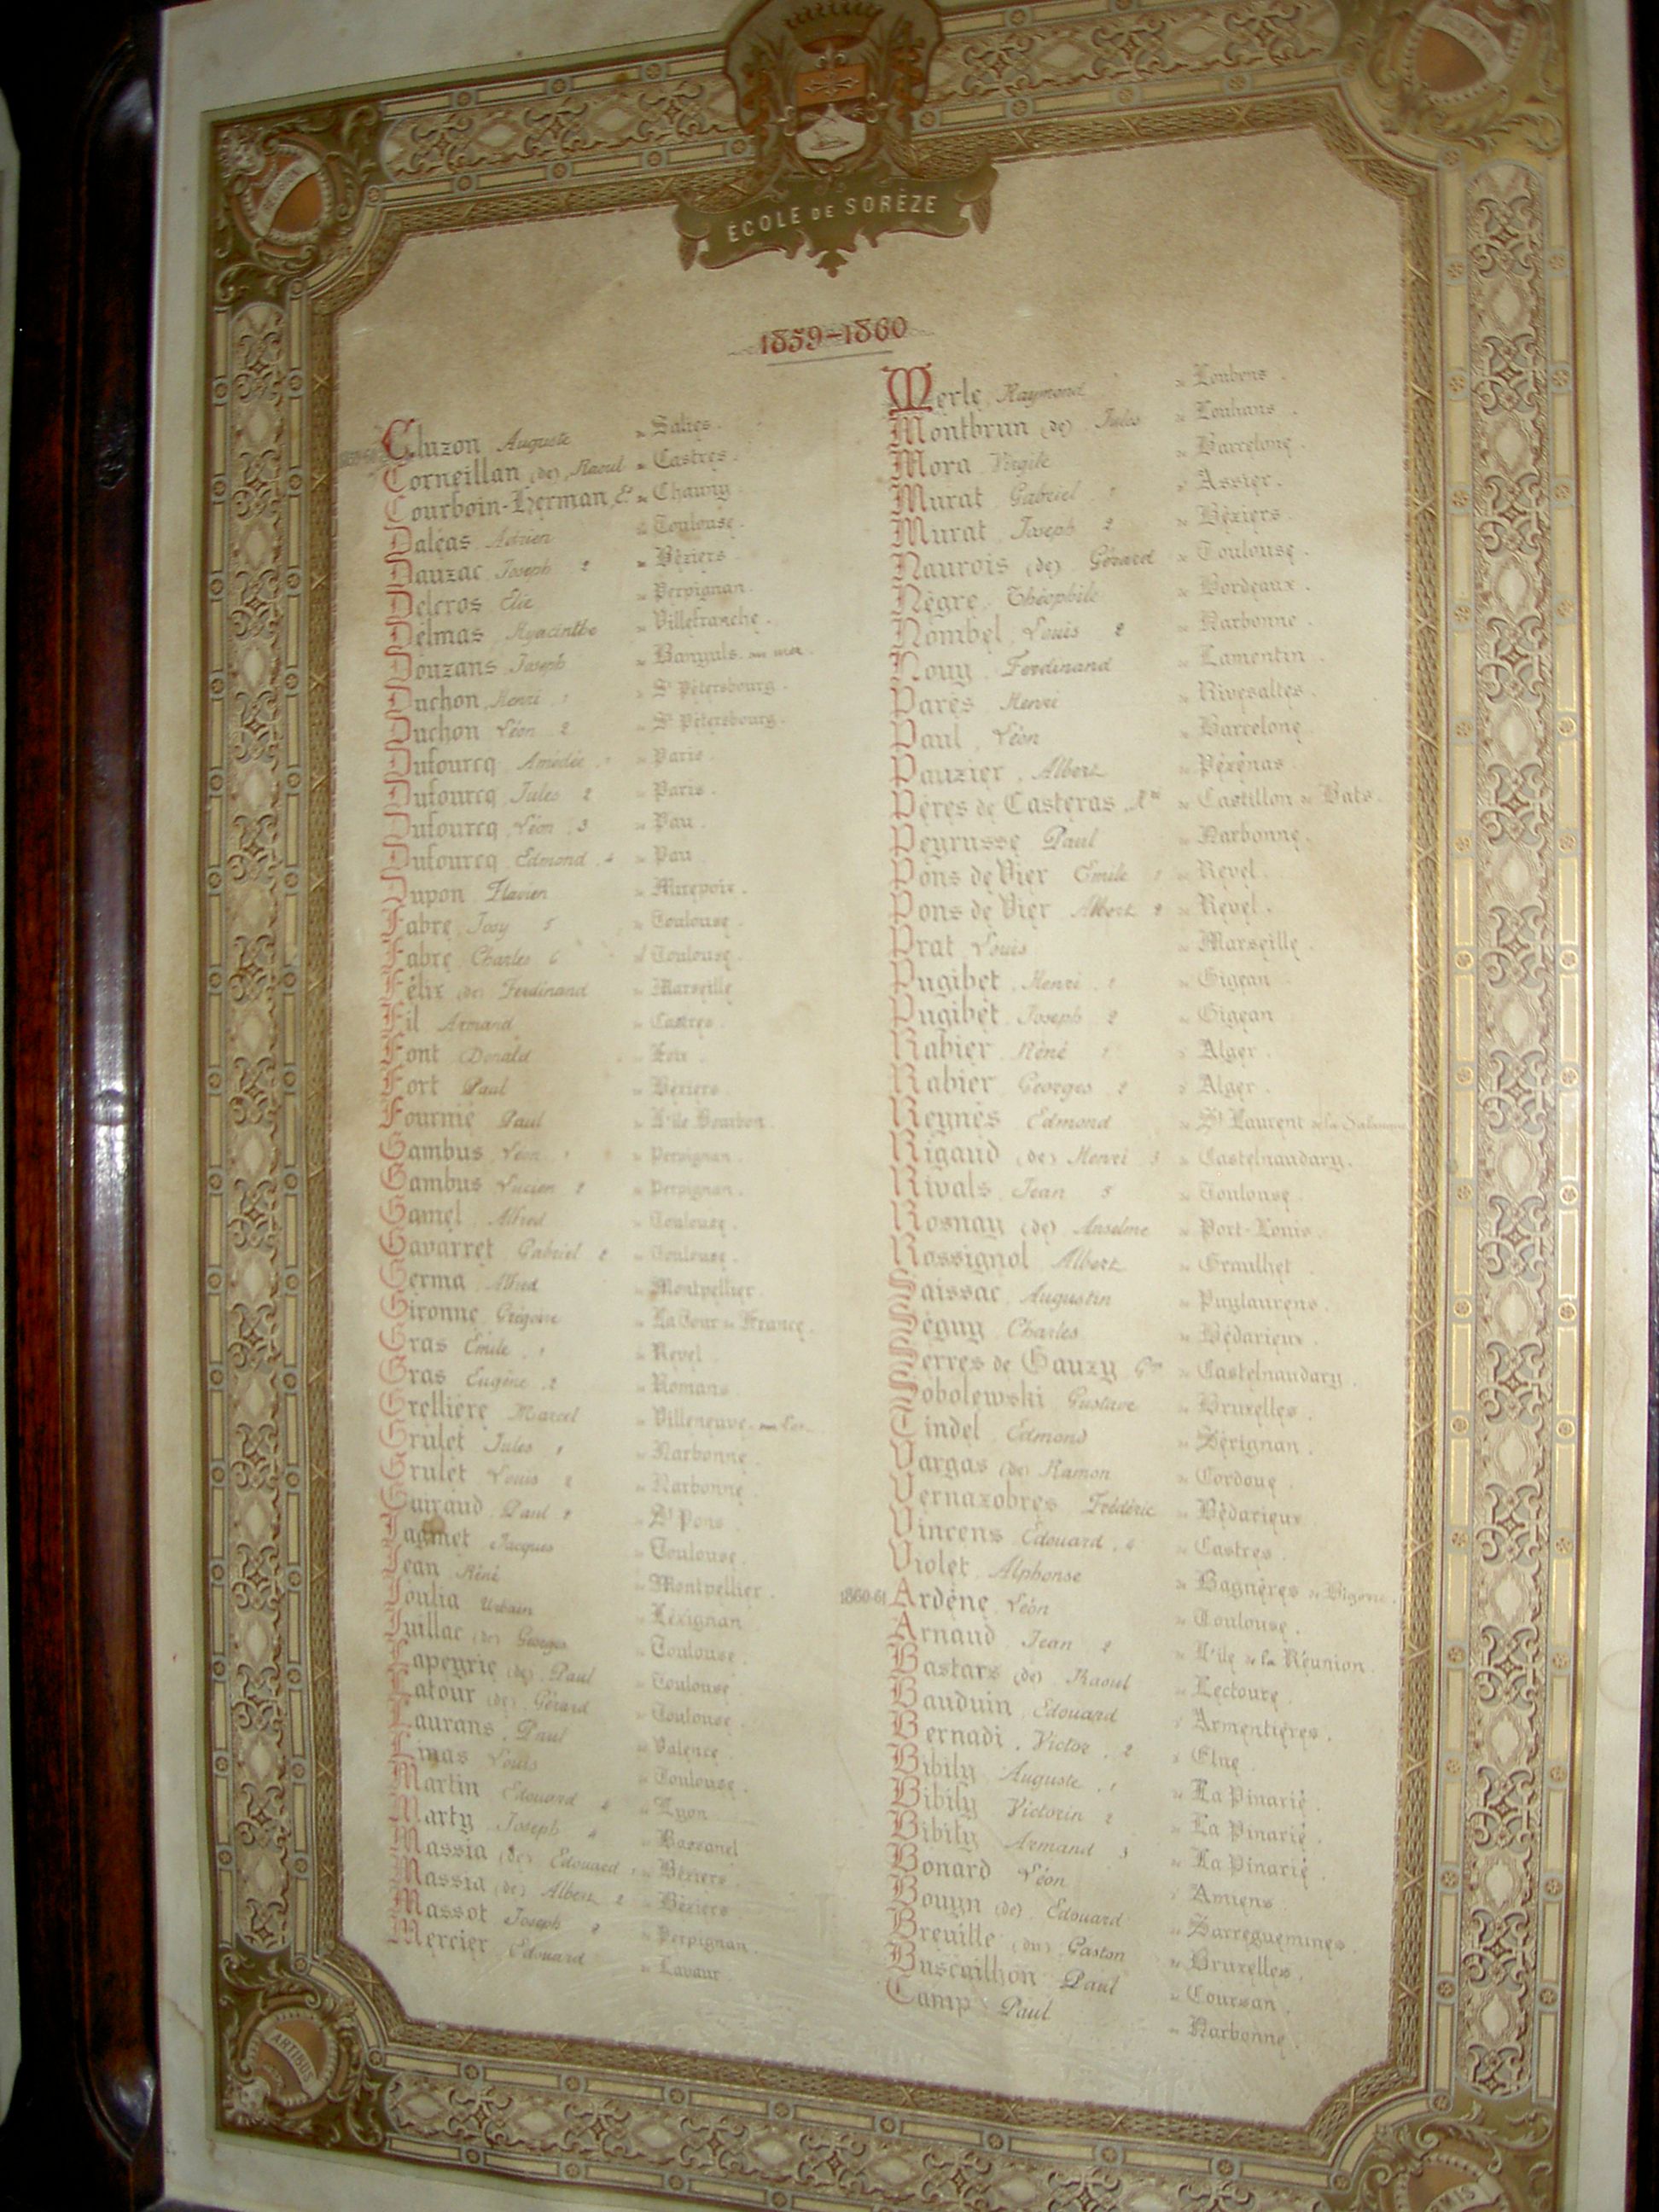 ÉCOLE DE SORÈZE
1859-1860
Cluzon Auguste de Salies.
Corneillan (de) Raoul de Castres.
Courboin-Herman, E. de Chauny
Daléas Adrien de Toulouse.
Dauzac Joseph 2 de Béziers
Delcros Élie de Perpignan.
Delmas Hyacinthe de Villefranche.
Douzans Joseph de Banyuls-sur-mer.
Duchon Henri 1 de St Pétersbourg.
Duchon Léon 2 de St Pétersbourg.
Dufourcq Amédée 1 de Paris.
Dufourcq Jules 2 de Paris.
Dufourcq Léon 3 de Pau.
Dufourcq Edmond 4 de Pau
Dupon Flavien de Mirepoix.
Fabre Josy 5 de Toulouse.
Fabre Charles 6 de Toulouse.
Félix (de) Ferdinand de Marseille
Fil Armand de Castres.
Font Donald de Foix.
Fort Paul de Béziers
Fournié Paul de L'île Bourbon.
Gambus Léon 1 de Perpignan.
Gambus Lucien 2 de Perpignan.
Gamel Alfred de Toulouse.
Gavarret Gabriel 2 de Toulouse.
Germa Alfred de Montpellier.
Gironne Grégoire de La Tour de France.
Gras Émile 1 de Revel
Gras Eugène 2 de Romans
Grellière Marcel de Villeneuve-sur-Lot
Grulet Jules 1 de Narbonne.
Grulet Louis 2 de Narbonne.
Guiraud Paul de St Pons
Jacques de Toulouse.
Jean Réné de Montpellier.
Joulia Urbain de Lézignan
Juillac (de) Georges de Toulouse.
Lapeyrie (de) Paul de Toulouse
Latour (de) Gérard de Toulouse.
Laurans Paul de Valence
Louis de Toulouse.
Martin Edouard 4 de Lyon
Marty Joseph 4 de Bassanel
Massia (de) Edouard 1 de Béziers
Massia (de) Albert 2 de Béziers
Massot Joseph 2 de Perpignan.
Mercier Edouard de Lavaur.
Merle Raymond de Loubens.
Montbrun (de) Jules de Louhans.
Mora Virgile de Barcelone.
Murat Gabriel 1 d' Assier.
Murat Joseph 2 de Béziers.
Naurois (de) Gérard de Toulouse.
Nègre Théophile de Bordeaux.
Nombel Louis 2 de Narbonne.
Nouy Ferdinand de Lamentin.
Parès Henri de Rivesaltes.
Paul Léon de Barcelone.
Pauzier Albert de Pézénas.
Pères de Casteras de Castillon de Bats.
Peyrusse Paul de Narbonne.
Pons de Vier Emile 1 de Revel.
Pons de Vier Albert 2 de Revel.
Prat Louis de Marseille.
Pugibet Henri 1 de Gigean
Pugibet Joseph 2 de Gigean
Rabier Réné 1 d' Alger.
Rabier Georges 2 d' Alger.
Reynès Edmond de St Laurent de la Salanque
Rigaud (de) Henri 3 de Castelnaudary.
Rivals Jean 5 de Toulouse.
Rosnay (de) Anselme de Port-Louis.
Rossignol Albert de Graulhet.
Saissac Augustin de Puylaurens.
Séguy Charles de Bédarieux.
Serres de Gauzy de Castelnaudary.
Sobolewski Gustave de Bruxelles.
Tindel Edmond de Sérignan.
Vargas (de) Ramon de Cordoue.
Vernazobres Frédéric de Bédarieux
Vincens Edouard 4 de Castres.
Violet Alphonse de Bagnères de Bigorre.
1860-61 Ardène Léon de Toulouse.
Arnaud Jean 2 de L'île de la Réunion.
Bastard (de) Raoul de Lectoure.
Bauduin Edouard d' Armentières.
Bernadi Victor 2 d' Elne
Bibily Auguste 1 de La Pinarié.
Bibily Victorin 2 de La Pinarié.
Bibily Armand 3 de La Pinarié
Bonard Léon d' Amiens
Bouyn (de) Edouard de Sarreguemines.
Breuille (du) Gaston de Bruxelles.
Buscailhon Paul de Coursan.
Camp Paul de Narbonne.
ARTIBUS